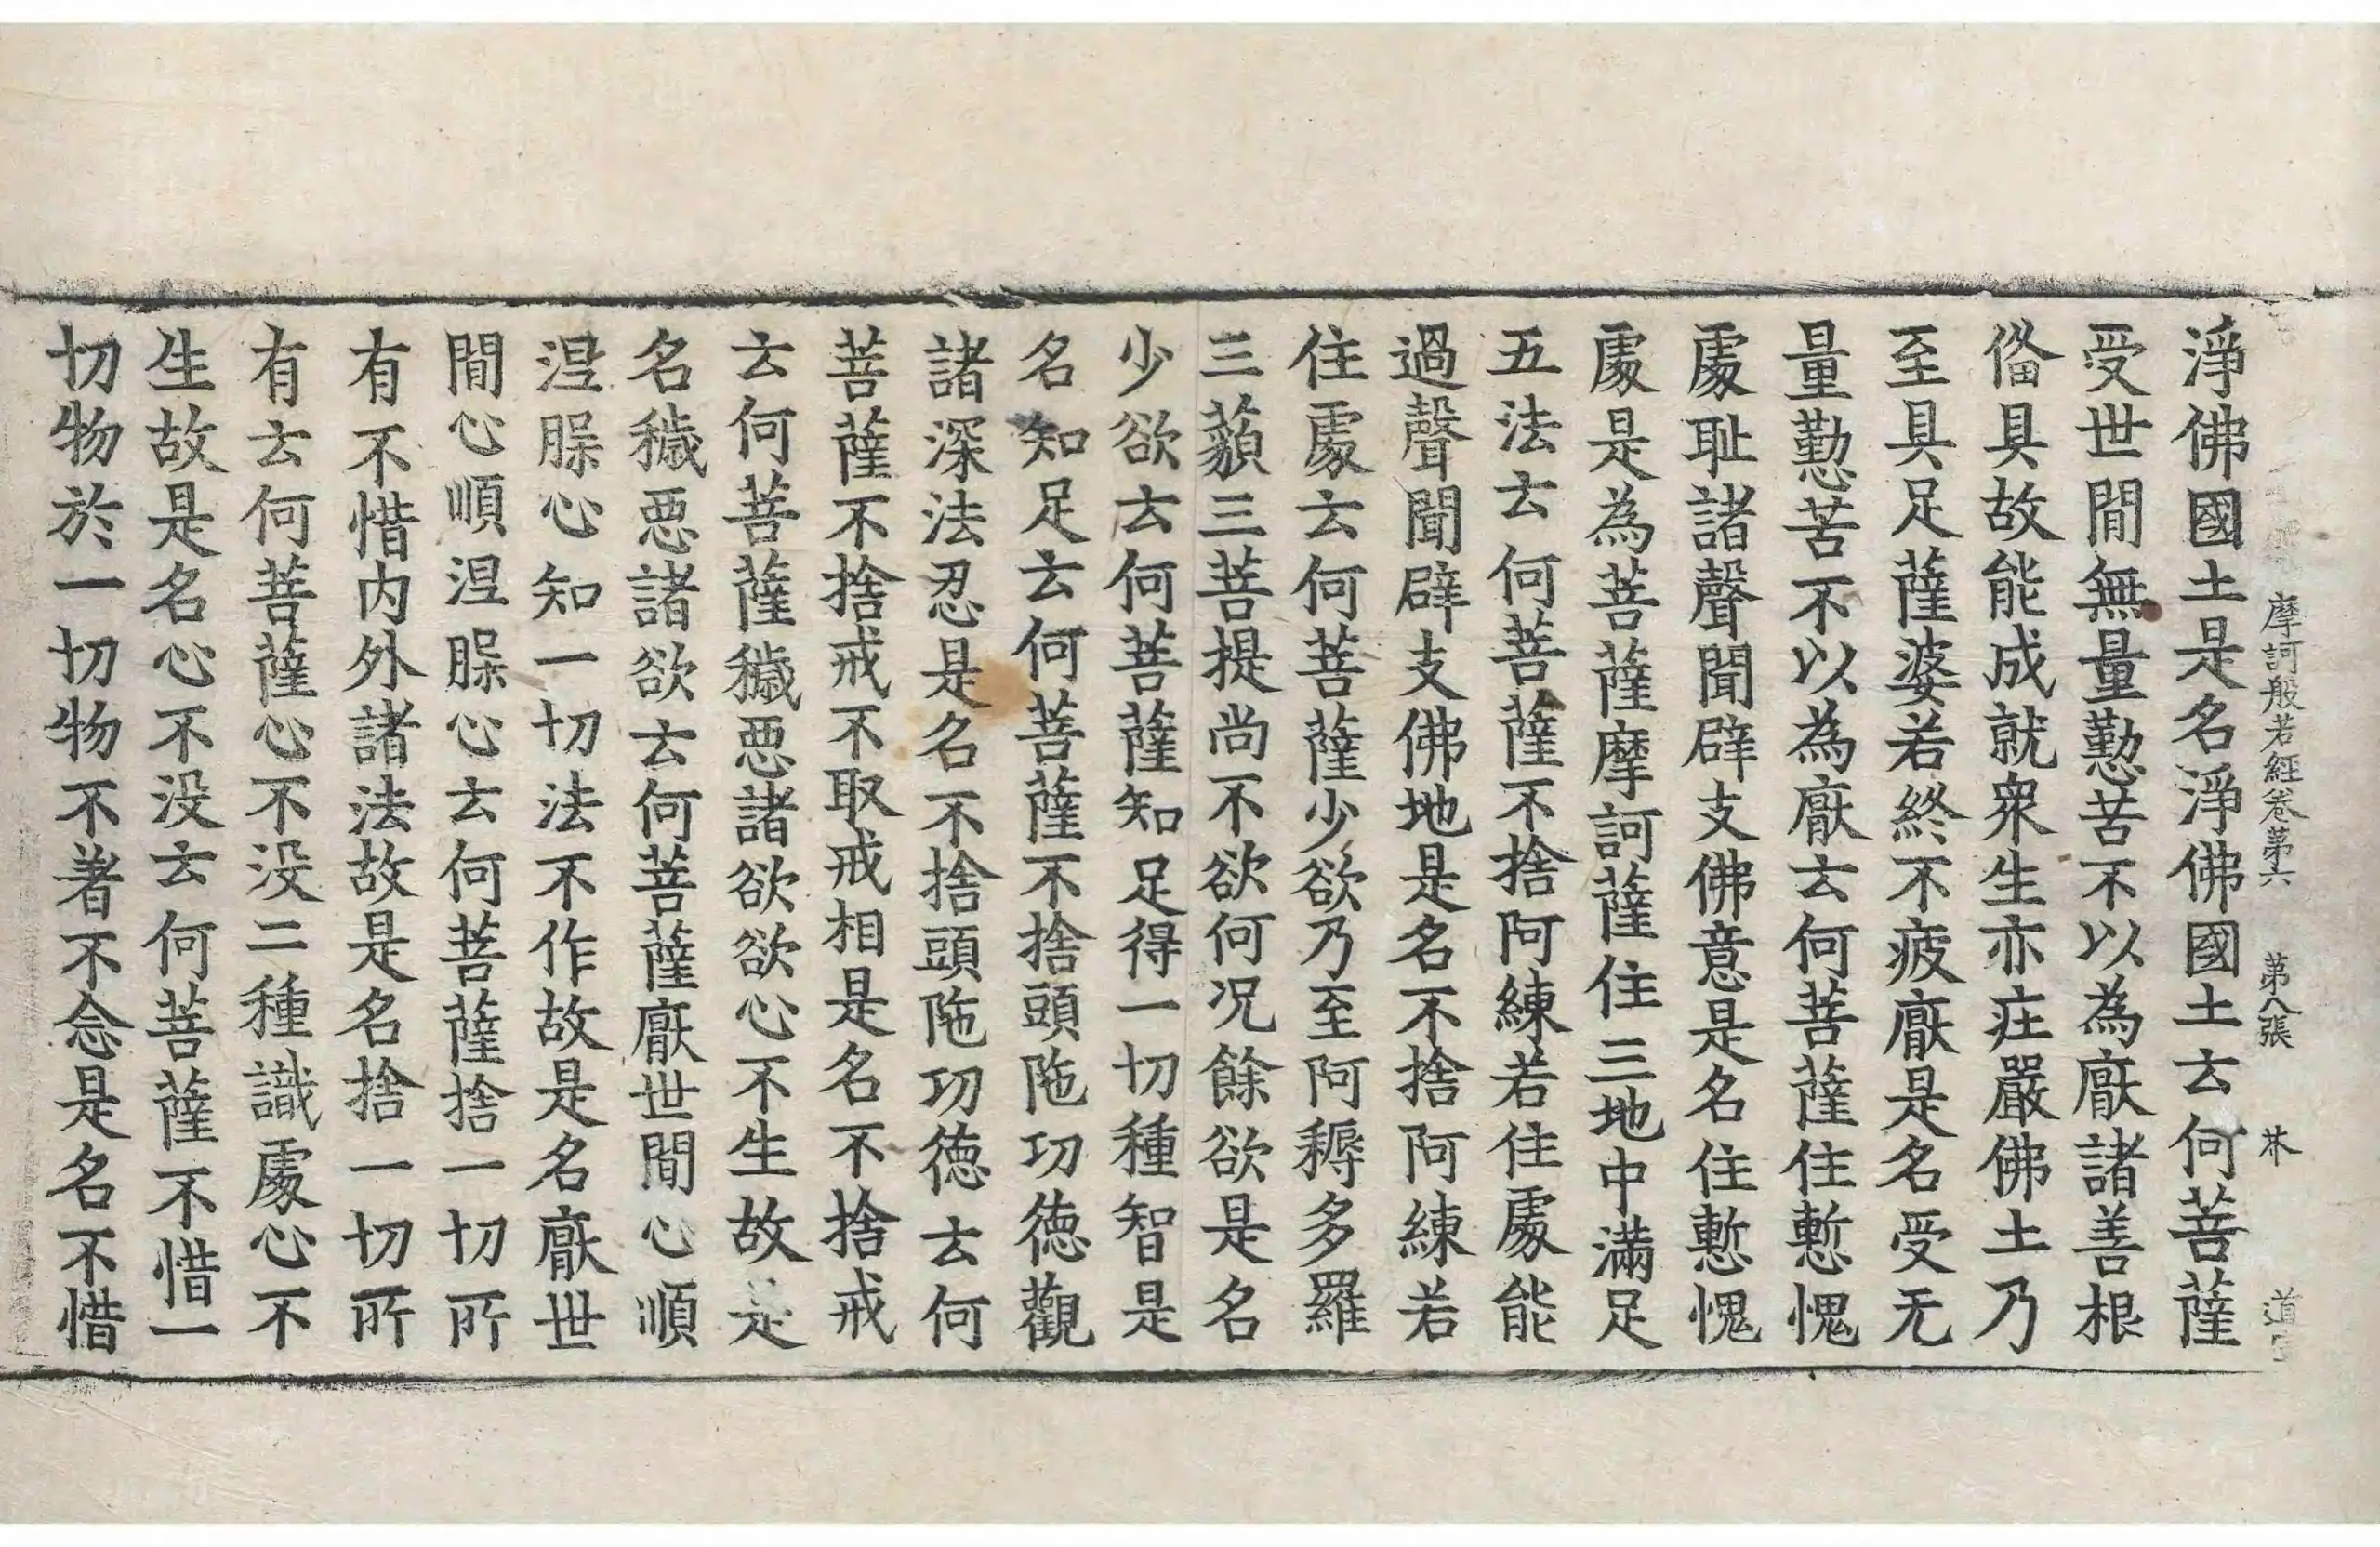 摩訶般若經卷第六　第八張　𣏌　道
淨佛國土是名淨佛國土云何菩薩
受世間無量懃苦不以為厭諸善根
俻具故能成就衆生亦荘嚴佛土乃
至具足薩婆若終不疲厭是名受无
量懃苦不以為厭云何菩薩住慙愧
處耻諸聲聞辟支佛意是名住慙愧
處是為菩薩摩訶薩住三地中滿足
五法云何菩薩不捨阿練若住處能
過聲聞辟支佛地是名不捨阿練若
住處云何菩薩少欲乃至阿耨多羅
三藐三菩提尚不欲何况餘欲是名
少欲云何菩薩知足得一切種智是
名知足云何菩薩不捨頭陁功徳觀
諸深法忍是名不捨頭陁功徳云何
菩薩不捨戒不取戒相是名不捨戒
云何菩薩穢惡諸欲欲心不生故是
名穢惡諸欲云何菩薩厭世間心順
涅腺心知一切法不作故是名厭世
間心順涅腺心云何菩薩捨一切所
有不惜内外諸法故是名捨一切所
有云何菩薩心不没二種識處心不
生故是名心不没云何菩薩不惜一
切物於一切物不著不念是名不惜